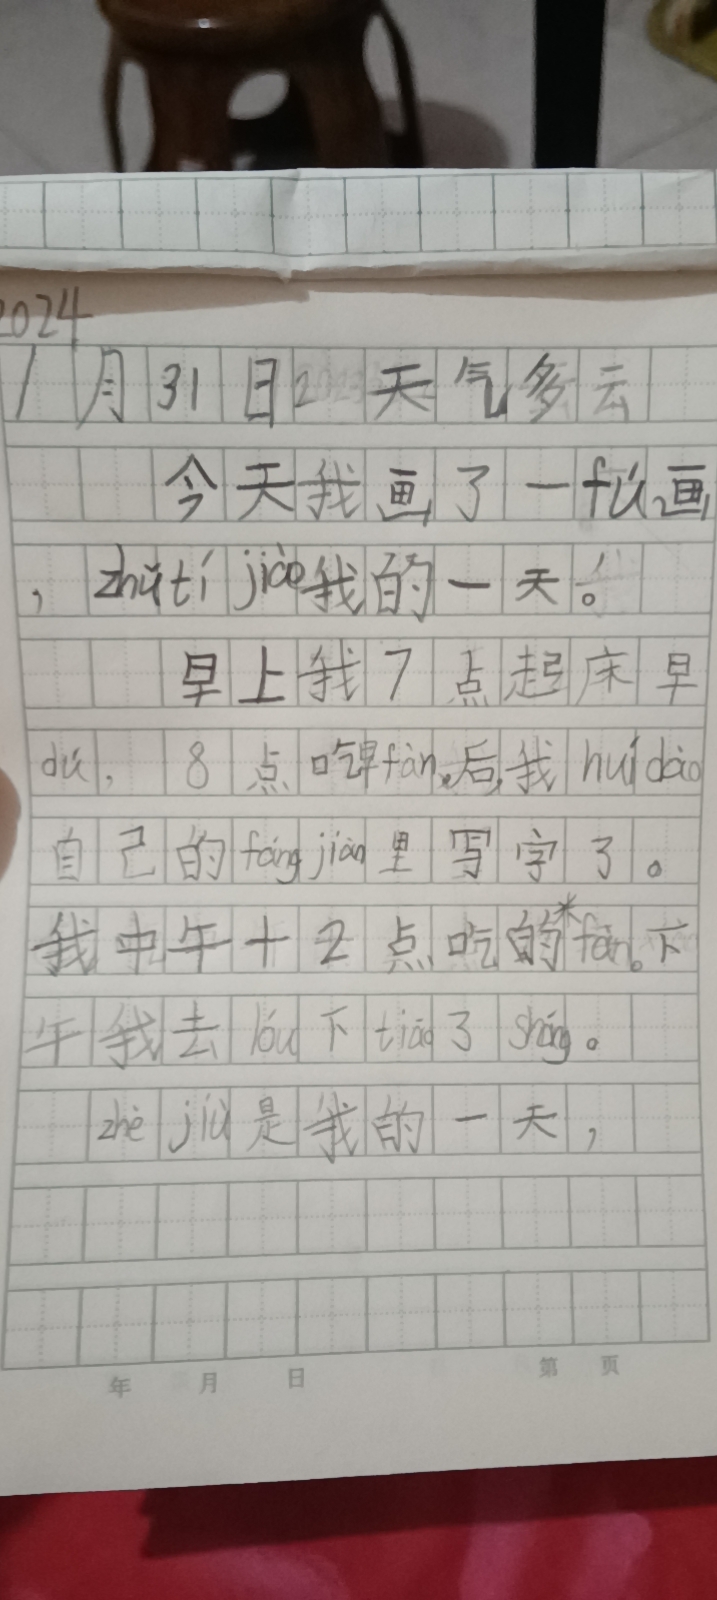 2024
1月31日 天气多云
今天我画了一fú画
，zhǔtí jiào我的一天。
早上我7点起床早
dú，8点吃早fàn，后，我huí dào
自己的fáng jiān里写字了。
我中午十2点吃的fàn。下
午我去lóu下tiào了shéng。
zhè jiù是我的一天，
年 月 日 第 页